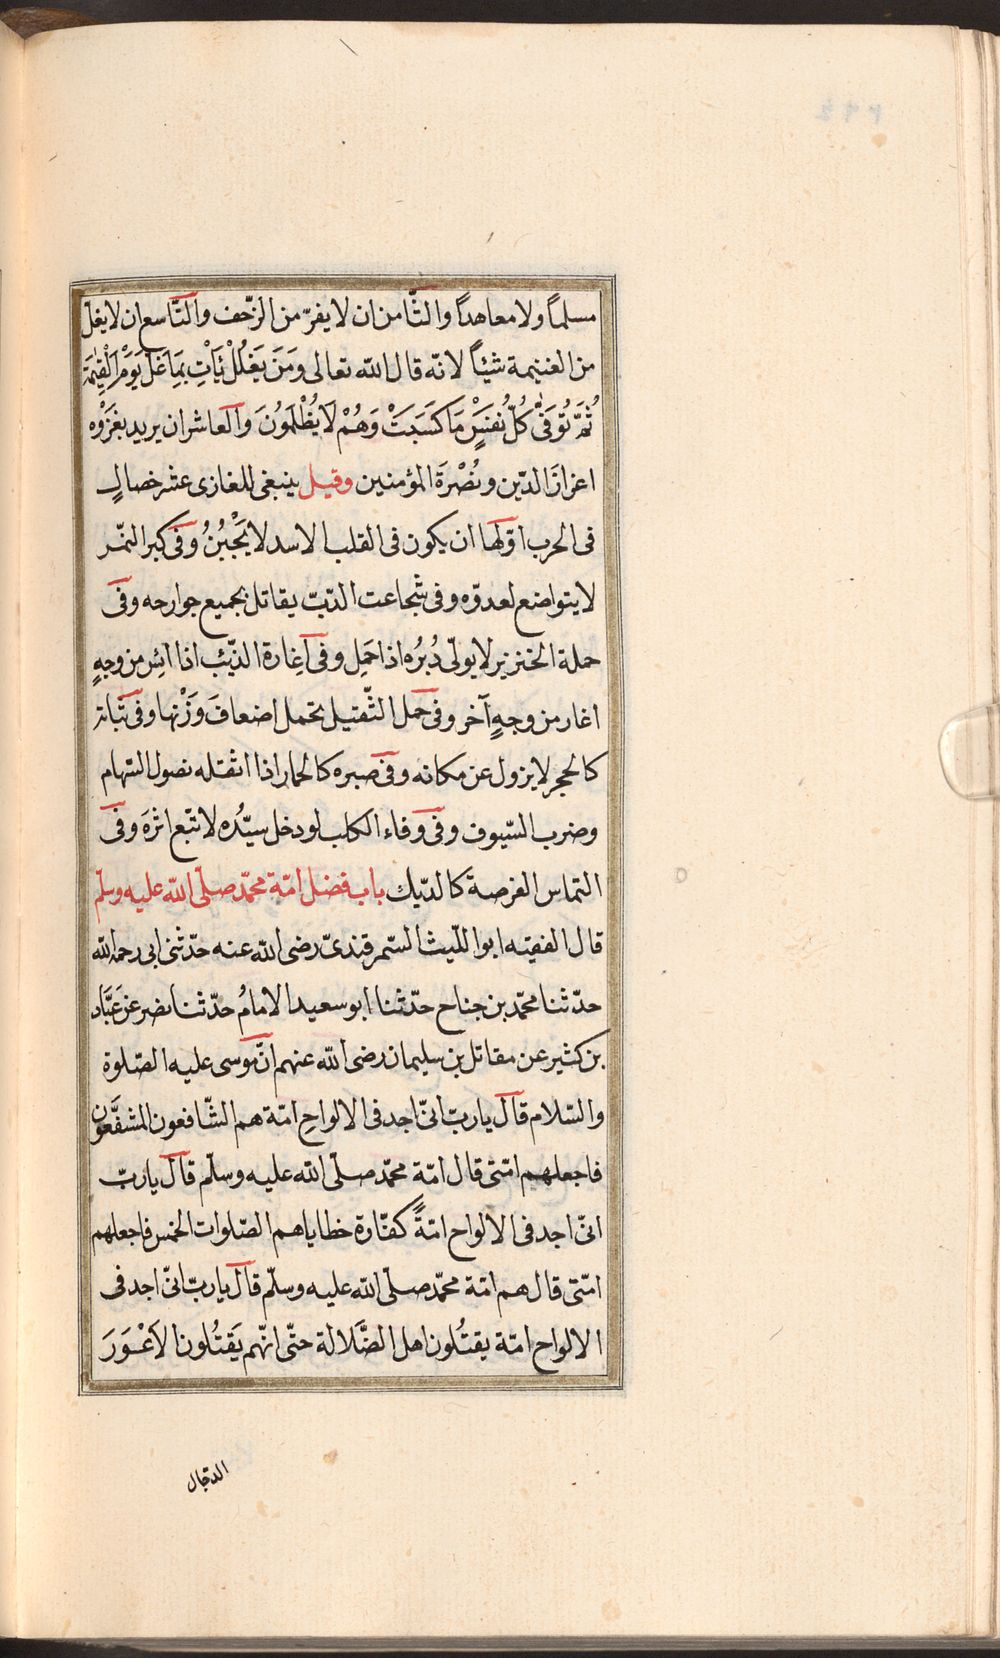 مسلماً ولا معاهداً والثّامن ان لا يفرّ من الزّحف والتّاسع ان لا يغل
من الغنيمة شيئاً لانّه قال الله تعالى وَمَن يَغْلُلْ يَأْتِ بِمَا غَلَّ يَوْمَ الْقِيٰمَةِ
ثُمَّ تُوَفّٰى كُلُّ نَفْسٍ مَا كَسَبَتْ وَهُمْ لَا يُظْلَمُونَ والعاشر ان يريد بغَزْوِه
اعزازَ الدّين ونُصْرَةَ المؤمنين وقيل ينبغى للغازى عشر خصالٍ
فى الحرب اوّلها ان يكون فى القلب الاسد لا يَجْبُنُ وفى كبر النّمر
لا يتواضع لعدوّه وفى شجاعت الدّبّ يقاتل بجميع جوارحه وفى
حملة الخنزير لا يولّى دُبُره اذا حَمِل وفى اِغارة الذّئب اذا ائِس من وجهٍ
اغار من وجهٍ آخر وفى حمل الثّقيل تحمل اضعافَ وَزْنها وفى ثباته
كالحجر لا يزول عن مكانه وفى صبره كالحمار اذا اثقله نصول السّهام
وضرب السّيوف وفى وفاء الكلب لو دخل سيّدُه لاتّبع اثرَه وفى
التماس الفرصة كالدّيك باب فضل امّة محمّد صلّى الله عليه وسلّم
قال الفقيه ابو اللّيث السّمرقندىّ رضى الله عنه حدّثنى ابى رحمه الله
حدّثنا محمّد بن جناح حدّثنا ابو سعيد الامامُ حدّثنا نضر عن عَبَّاد
بن كثير عن مقاتل بن سليمان رضى الله عنهم انّ موسى عليه الصّلوة
والسّلام قال يا ربّ انّى اجد فى الالواحِ امّة هم الشّافعون المشفَّعون
فاجعلهم امّتى قال امّة محمّد صلّى الله عليه وسلّم قال يا ربّ
انّى اجد فى الالواح امّةً كفّارة خطاياهم الصّلوات الخمس فاجعلهم
امّتى قال هم امّة محمّد صلّى الله عليه وسلّم قال يا ربّ انّى اجد فى
الالواح امّة يقتُلون اهل الضَّلالة حتّى انّهم يَقتُلون الاَعْوَرَ
الدجّال